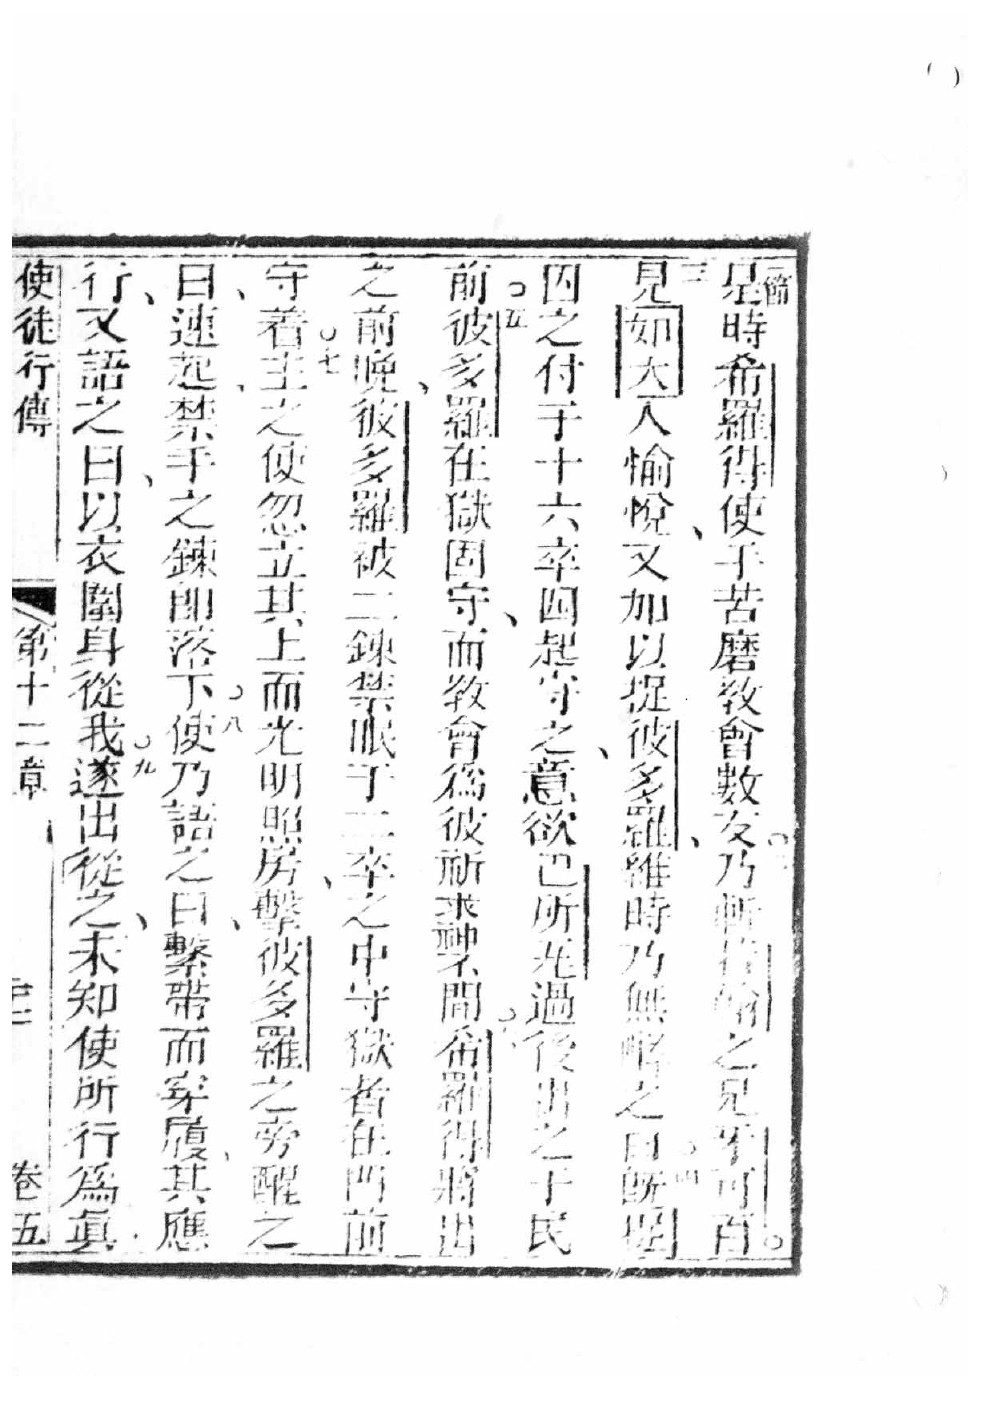 一節是時希羅得使手苦磨教會數友乃斬者翰之兄牙可百
三見如大人愉悅又加以捉彼多羅維時乃無酵之日四旣捉
囚之付于十六卒四起守之意欲巴所瓦過後出之于民
前五彼多羅在獄固守而教會為彼祈求神六間希羅得將出
之前晚彼多羅被二鍊禁眠于二卒之中守獄者在門前
守着七主之使忽立其上而光明照房擊彼多羅之旁醒之
曰速起禁手之鍊即落下八使乃語之曰繫帶而穿履其應
行又語之曰以衣圍身從我九遂出從之未知使所行為眞
使徒行傳 第十二章 卷五